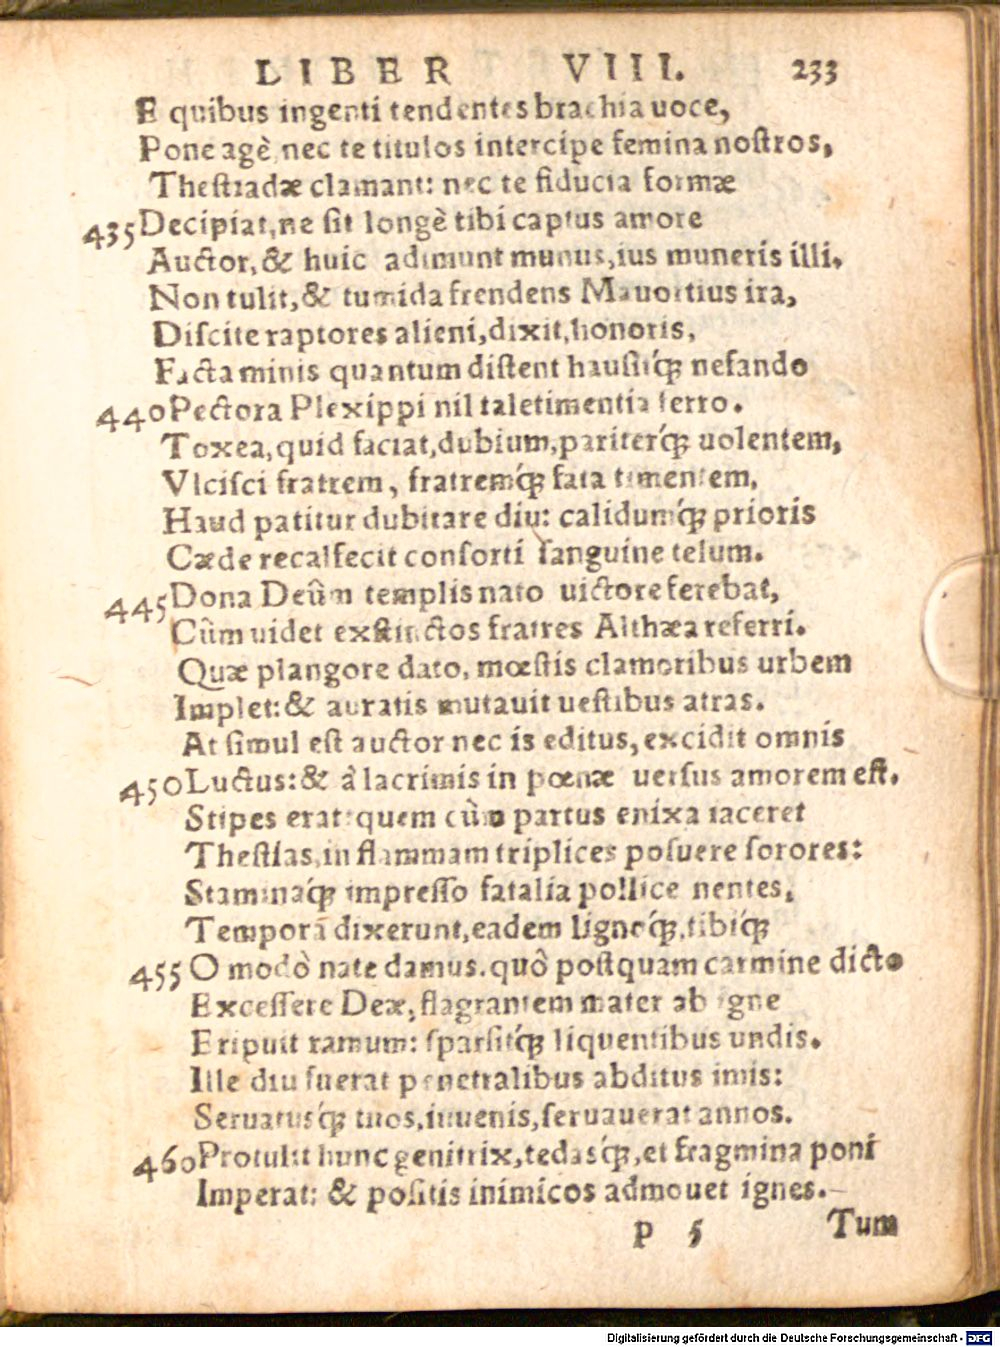 LIBER VIII. 233
E quibus ingenti tendentes brachia uoce,
Pone agè nec te titulos intercipe femina nostros,
Thestiadæ clamant: nec te fiducia formæ
435 Decipiat, ne sit longè tibi captus amore
Auctor, & huic adimunt munus, ius muneris illi.
Non tulit, & tumida frendens Mauortius ira,
Discite raptores alieni, dixit, honoris,
Facta minis quantum distent hausitq́; nefando
440 Pectora Plexippi nil tale timentia ferro.
Toxea, quid faciat, dubium, pariterq́; uolentem,
Vlcisci fratrem, fratremq́; fata timentem,
Haud patitur dubitare diu: calidumq́; prioris
Cæde recalfecit consorti sanguine telum.
445 Dona Deûm templis nato uictore ferebat,
Cùm uidet exstinctos fratres Althæa referri.
Quæ plangore dato, mœstis clamoribus urbem
Implet: & auratis mutauit uestibus atras.
At simul est auctor necis editus, excidit omnis
450 Luctus: & à lacrimis in pœnæ uersus amorem est.
Stipes erat: quem cùm partus enixa iaceret
Thestias, in flammam triplices posuere sorores:
Staminaq́; impresso fatalia pollice nentes,
Tempora dixerunt, eadem lignoq́;, tibiq́;
455 O modò nate damus. quò postquam carmine dicto
Excessere Deæ, flagrantem mater ab igne
Eripuit ramum: sparsitq́; liquentibus undis.
Ille diu fuerat penetralibus abditus imis:
Seruatusq́; tuos, iuuenis, seruauerat annos.
460 Protulit hunc genitrix, tedasq́;, et fragmina poni
Imperat: & positis inimicos admouet ignes.
P 5 Tum
Digitalisierung gefördert durch die Deutsche Forschungsgemeinschaft - DFG